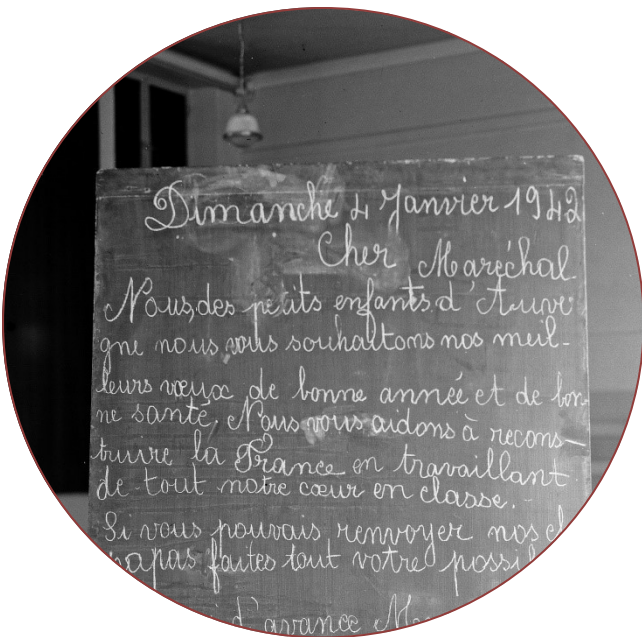 Dimanche 4 Janvier 1942
Cher Maréchal.
Nous, des petits enfants d'Auver
gne nous vous souhaitons nos meil-
leurs vœux de bonne année et de bon-
ne santé, Nous vous aidons à recons-
truire la France en travaillant
de tout notre cœur en classe.
Si vous pouvais renvoyer nos
papas faites tout votre possi
d'avance